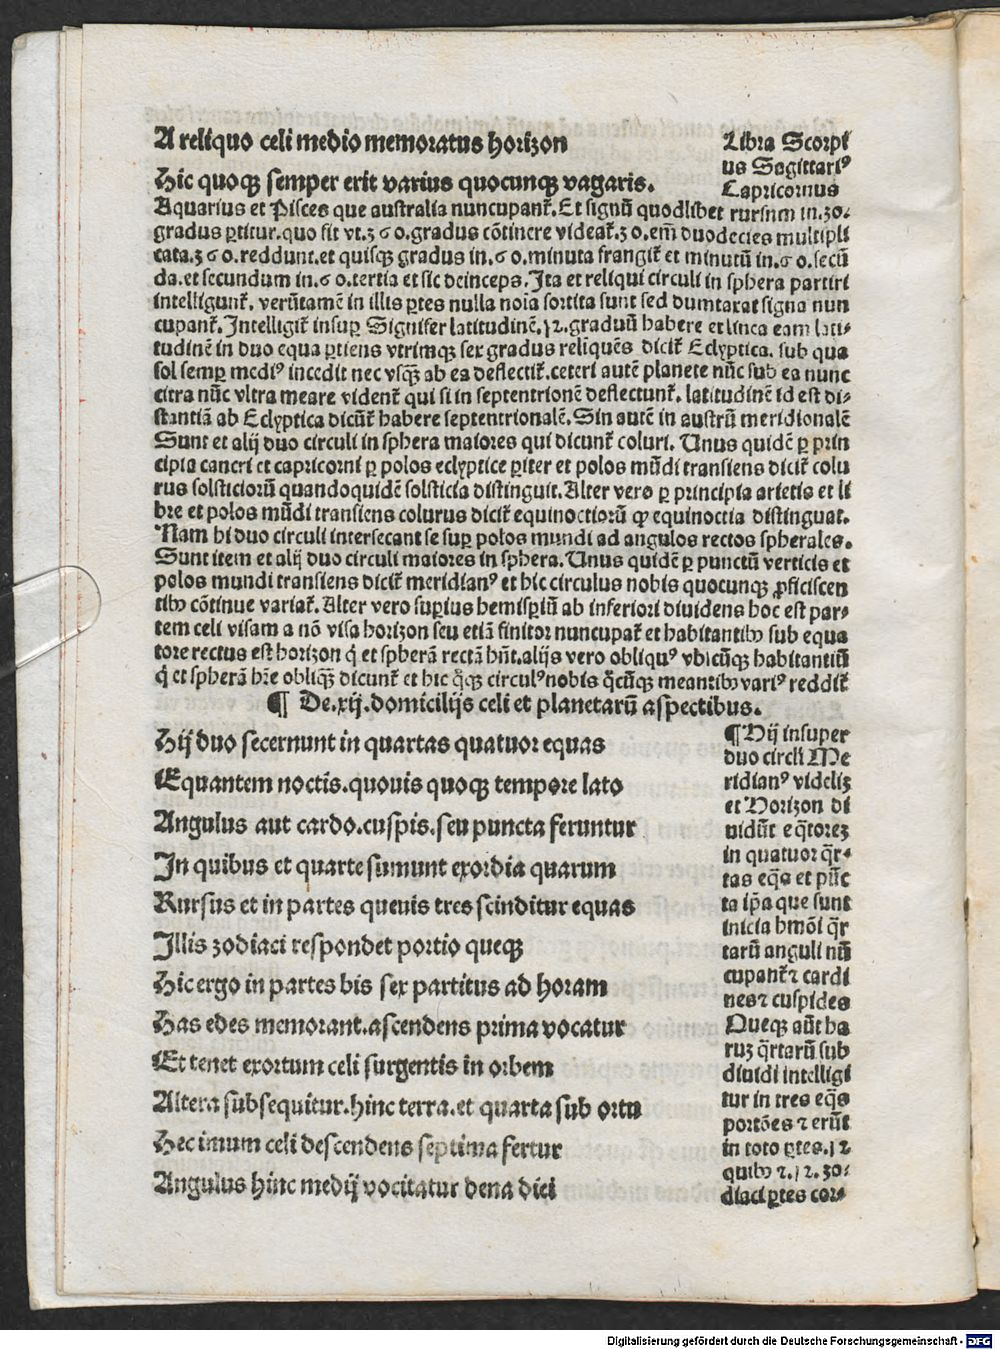 A reliquo celi medio memoratus horizon
Hic quoqꝫ semper erit varius quocunqꝫ vagaris.
Libra Scorpi
us Sagittariꝰ
Capricornus
Aquarius et Pisces que australia nuncupant̃. Et signũ quodlibet rursum in.30.
gradus ꝑtitur.quo fit vt.360.gradus cõtinere videat̃.30.em̃ duodecies multipli
cata.360.reddunt.et quisqꝫ gradus in.60.minuta frangit̃ et minutũ in.60.secũ
da.et secundum in.60.tertia et sic deinceps. Ita et reliqui circuli in sphera partiri
intelligunt̃. verũtamẽ in illis ꝑtes nulla noĩa sortita sunt sed dumtaxat signa nun
cupant̃. Intelligit̃ insuꝑ Signifer latitudinẽ.12.graduũ habere et linea eam lati-
tudinẽ in duo equa ꝑtiens vtrimqꝫ sex gradus reliquẽs dicit̃ Eclyptica. sub qua
sol semꝑ mediꝰ incedit nec vsq̃ꝫ ab ea deflectit̃.ceteri autẽ planete nũc sub ea nunc
citra nũc vltra meare vident̃ qui si in septentrionẽ deflectunt̃. latitudinẽ id est di-
stantiã ab Eclyptica dicũt̃ habere septentrionalẽ. Sin autẽ in austrũ meridionalẽ
Sunt et alij duo circuli in sphera maiores qui dicunt̃ coluri. Unus quidẽ ꝑ prin
cipia cancri et capricorni ꝑ polos eclyptice ꝑiter et polos mũdi transiens dicit̃ colu
rus solsticiorũ quandoquidẽ solsticia distinguit. Alter vero ꝑ principia arietis et li
bre et polos mũdi transiens colurus dicit̃ equinoctiorũ ꝙ equinoctia distinguat.
Nam hi duo circuli intersecant se suꝑ polos mundi ad angulos rectos spherales.
Sunt item et alij duo circuli maiores in sphera. Unus quidẽ ꝑ punctũ verticis et
polos mundi transiens dicit̃ meridianꝰ et hic circulus nobis quocunqꝫ ꝓficiscen
tibꝰ cõtinue variat̃. Alter vero suꝑius hemisꝑiũ ab inferiori diuidens hoc est par-
tem celi visam a nõ visa horizon seu etiã finitor nuncupat̃ et habitantibꝰ sub equa
tore rectus est horizon q̃ et spherã rectã hñt. alijs vero obliquꝰ vbicũqꝫ habitantiũ
q̃ et spherã hr̃e obliq̃ꝫ dicunt̃ et hic q̃qꝫ circulꝰ nobis q̃cũqꝫ meantibꝰ variꝰ reddit̃
¶ De.xij.domicilijs celi et planetarũ aspectibus.
Hij duo secernunt in quartas quatuor equas
Equantem noctis.quouis quoqꝫ tempore lato
Angulus aut cardo.cuspis.seu puncta feruntur
In quibus et quarte sumunt exordia quarum
Rursus et in partes queuis tres scinditur equas
Illis zodiaci respondet portio queqꝫ
Hic ergo in partes bis sex partitus ad horam
Has edes memorant.ascendens prima vocatur
Et tenet exortum celi surgentis in orbem
Altera subsequitur.hinc terra.et quarta sub ortu
Hec imum celi descendens septima fertur
Angulus hinc medij vocitatur dena diei
¶ Hij insuper
duo circli Me
ridianꝰ videlꝫ
et Horizon di
uidũt eq̃toreꝫ
in quatuor q̃r-
tas eq̃s et pũc
ta ip̃a que sunt
inicia hmõi q̃r
tarũ anguli nũ
cupant̃ ⁊ cardi
nes ⁊ cuspides
Queqꝫ aũt ha
ruꝫ q̃rtarũ sub
diuidi intelligi
tur in tres eq̃s
portões ⁊ erũt
in toto ꝑtes.12
quibꝰ ⁊.12.zo-
diaci ꝑtes cor-
Digitalisierung gefördert durch die Deutsche Forschungsgemeinschaft - DFG